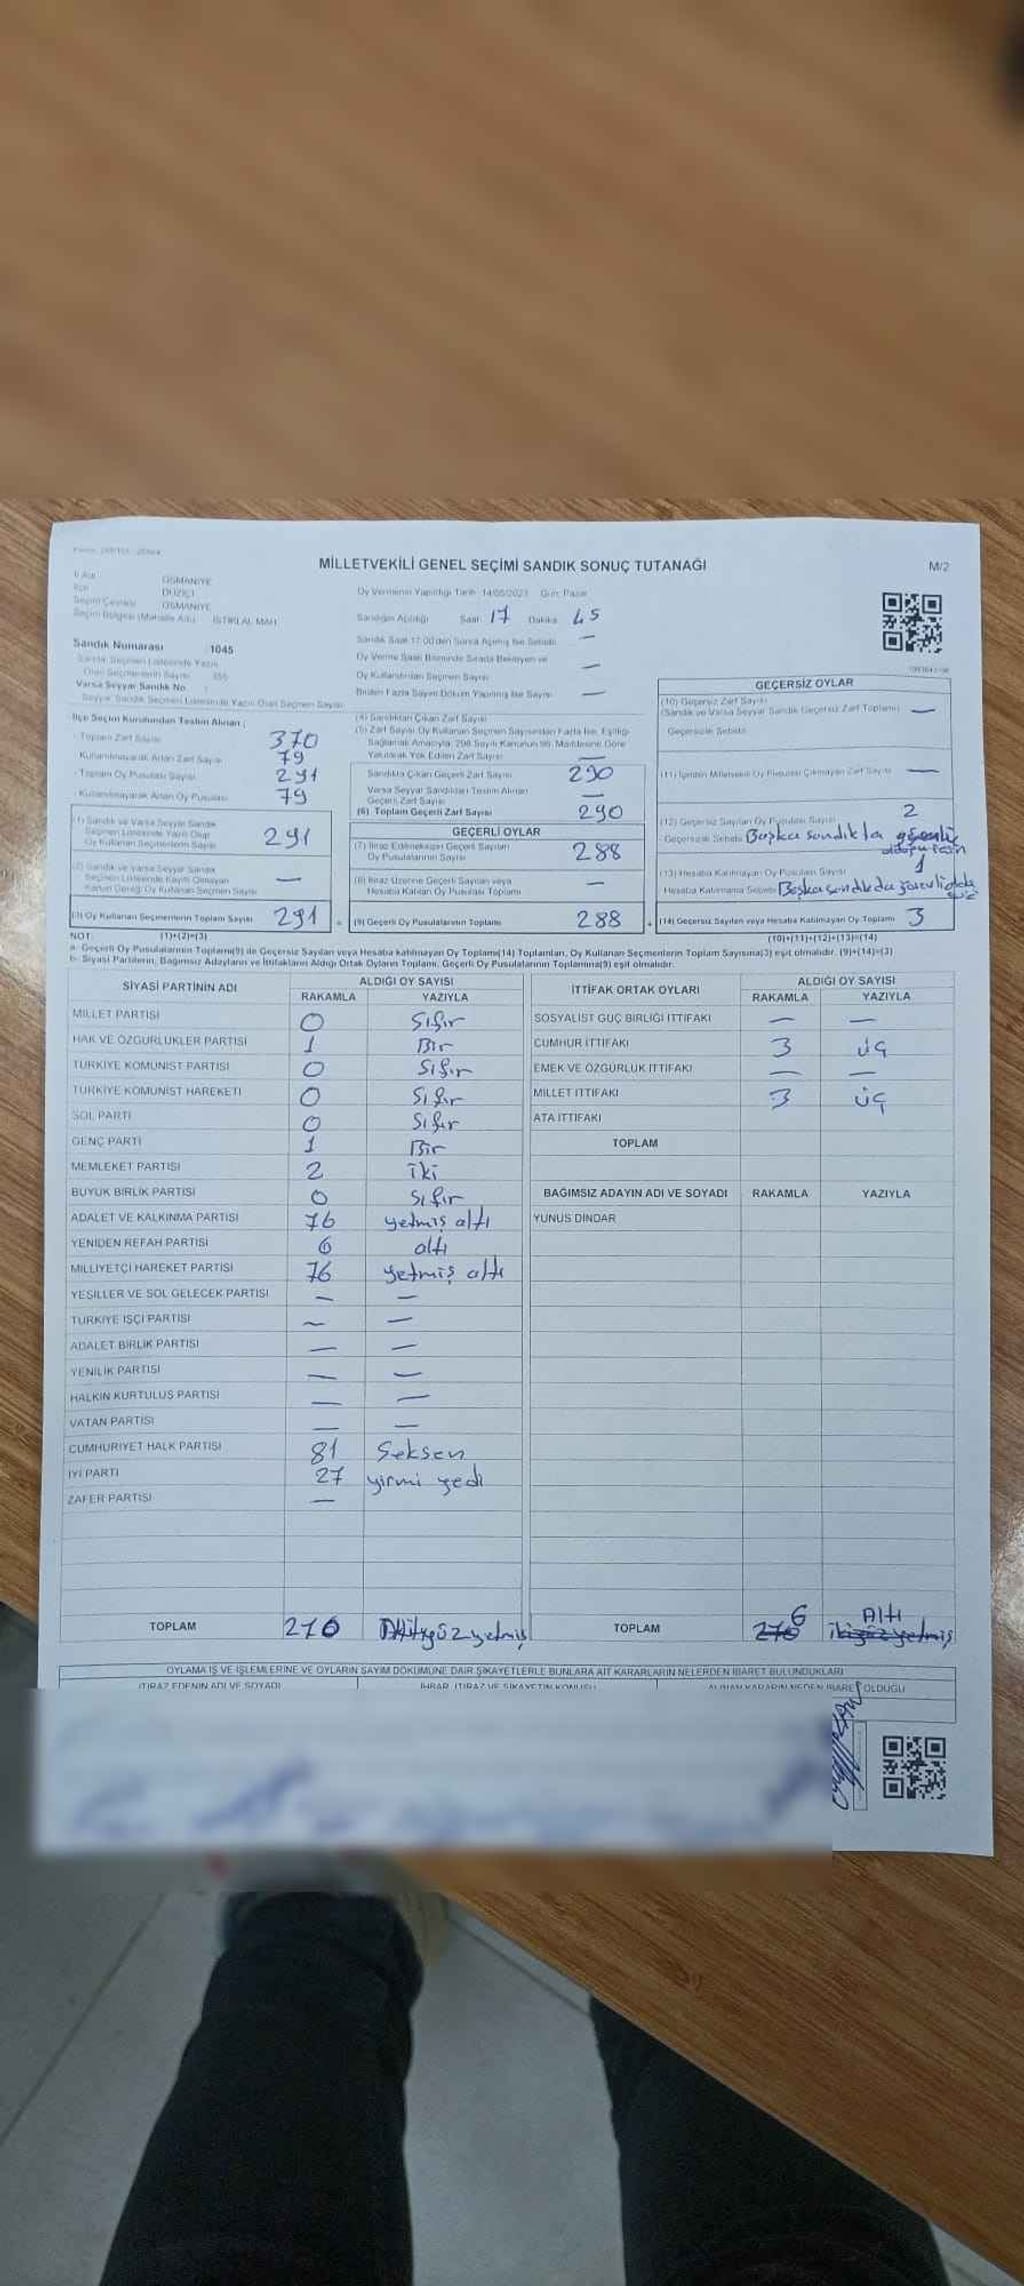 MİLLETVEKİLİ GENEL SEÇİMİ SANDIK SONUÇ TUTANAĞI
M/2
İli Adı OSMANİYE
İlçe DÜZİÇİ
Seçim Çevresi OSMANİYE
Seçim Bölgesi (Mahalle Adı) İSTİKLAL MAH.
Oy Vermenin Yapıldığı Tarih: 14/05/2023 Gün: Pazar
Sandığın Açıldığı Saat: 17 Dakika: 45
Sandık Saat 17:00'den Sonra Açılmış İse Sebebi —
Sandık Numarası : 1045
Oy Verme Saati Bitiminde Sırada Bekleyen ve
Oy Kullandırılan Seçmen Sayısı —
Birden Fazla Sayım Döküm Yapılmış İse Sayısı —
Sandık Seçmen Listesinde Yazılı
Olan Seçmenlerin Sayısı
Varsa Seyyar Sandık No :
Seyyar Sandık Seçmen Listesinde Yazılı Olan Seçmen Sayısı
İlçe Seçim Kurulundan Teslim Alınan ;
- Toplam Zarf Sayısı 370
Kullanılmayarak Artan Zarf Sayısı 79
- Toplam Oy Pusulası Sayısı 291
- Kullanılmayarak Artan Oy Pusulası 79
(1) Sandık ve Varsa Seyyar Sandık
Seçmen Listesinde Yazılı Olup
Oy Kullanan Seçmenlerin Sayısı 291
(2) Sandık ve Varsa Seyyar Sandık
Seçmen Listesinde Kaydı Olmayan
Kanun Gereği Oy Kullanan Seçmen Sayısı —
(3) Oy Kullanan Seçmenlerin Toplam Sayısı 291
(4) Sandıktan Çıkan Zarf Sayısı
(5) Zarf Sayısı Oy Kullanan Seçmen Sayısından Fazla İse, Eşitliği
Sağlamak Amacıyla, 298 Sayılı Kanunun 98. Maddesine Göre
Yakılarak Yok Edilen Zarf Sayısı —
Sandıkta Çıkan Geçerli Zarf Sayısı 290
Varsa Seyyar Sandıktan Teslim Alınan
Geçerli Zarf Sayısı —
(6) Toplam Geçerli Zarf Sayısı 290
GEÇERLİ OYLAR
(7) İtiraz Edilmeksizin Geçerli Sayılan
Oy Pusulalarının Sayısı 288
(8) İtiraz Üzerine Geçerli Sayılan veya
Hesaba Katılan Oy Pusulası Toplamı —
(9) Geçerli Oy Pusulalarının Toplamı 288
GEÇERSİZ OYLAR
(10) Geçersiz Zarf Sayısı
(Sandık ve Varsa Seyyar Sandık Geçersiz Zarf Toplamı) —
Geçersizlik Sebebi
(11) İçinden Milletvekili Oy Pusulası Çıkmayan Zarf Sayısı —
(12) Geçersiz Sayılan Oy Pusulası Sayısı 2
Geçersizlik Sebebi Başka sandıkta
(13) Hesaba Katılmayan Oy Pusulası Sayısı 1
Hesaba Katılmama Sebebi Başka sandıkda
(14) Geçersiz Sayılan veya Hesaba Katılmayan Oy Toplamı 3
NOT: (1)+(2)=(3)
(10)+(11)+(12)+(13)=(14)
a- Geçerli Oy Pusulalarının Toplamı(9) ile Geçersiz Sayılan veya Hesaba katılmayan Oy Toplamı(14) Toplamları, Oy Kullanan Seçmenlerin Toplam Sayısına(3) eşit olmalıdır. (9)+(14)=(3)
b- Siyasi Partilerin, Bağımsız Adayların ve İttifakların Aldığı Ortak Oyların Toplamı, Geçerli Oy Pusulalarının Toplamına(9) eşit olmalıdır.
SİYASİ PARTİNİN ADI ALDIĞI OY SAYISI
RAKAMLA YAZIYLA
MİLLET PARTİSİ 0 Sıfır
HAK VE ÖZGÜRLÜKLER PARTİSİ 1 Bir
TÜRKİYE KOMÜNİST PARTİSİ 0 Sıfır
TÜRKİYE KOMÜNİST HAREKETİ 0 Sıfır
SOL PARTİ 0 Sıfır
GENÇ PARTİ 1 Bir
MEMLEKET PARTİSİ 2 iki
BÜYÜK BİRLİK PARTİSİ 0 Sıfır
ADALET VE KALKINMA PARTİSİ 76 yetmiş altı
YENİDEN REFAH PARTİSİ 6 altı
MİLLİYETÇİ HAREKET PARTİSİ 76 yetmiş altı
YEŞİLLER VE SOL GELECEK PARTİSİ — —
TÜRKİYE İŞÇİ PARTİSİ — —
ADALET BİRLİK PARTİSİ — —
YENİLİK PARTİSİ — —
HALKIN KURTULUŞ PARTİSİ — —
VATAN PARTİSİ — —
CUMHURİYET HALK PARTİSİ 81 Seksen
İYİ PARTİ 27 yirmi yedi
ZAFER PARTİSİ —
TOPLAM 270
İTTİFAK ORTAK OYLARI ALDIĞI OY SAYISI
RAKAMLA YAZIYLA
SOSYALİST GÜÇ BİRLİĞİ İTTİFAKI — —
CUMHUR İTTİFAKI 3 üç
EMEK VE ÖZGÜRLÜK İTTİFAKI — —
MİLLET İTTİFAKI 3 üç
ATA İTTİFAKI
TOPLAM
BAĞIMSIZ ADAYIN ADI VE SOYADI RAKAMLA YAZIYLA
YUNUS DİNDAR
TOPLAM 6 Altı
OYLAMA İŞ VE İŞLEMLERİNE VE OYLARIN SAYIM DÖKÜMÜNE DAİR ŞİKAYETLERLE BUNLARA AİT KARARLARIN NELERDEN İBARET BULUNDUKLARI
İTİRAZ EDENİN ADI VE SOYADI İHBAR, İTİRAZ VE ŞİKAYETİN KONUSU ALINAN KARARIN NEDEN İBARET OLDUĞU